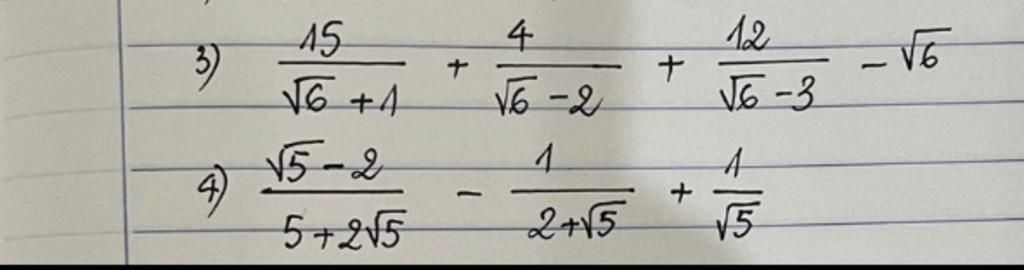 3) 15/(√6 + 1) + 4/(√6 - 2) + 12/(√6 - 3) - √6
4) (√5 - 2)/(5 + 2√5) - 1/(2 + √5) + 1/√5